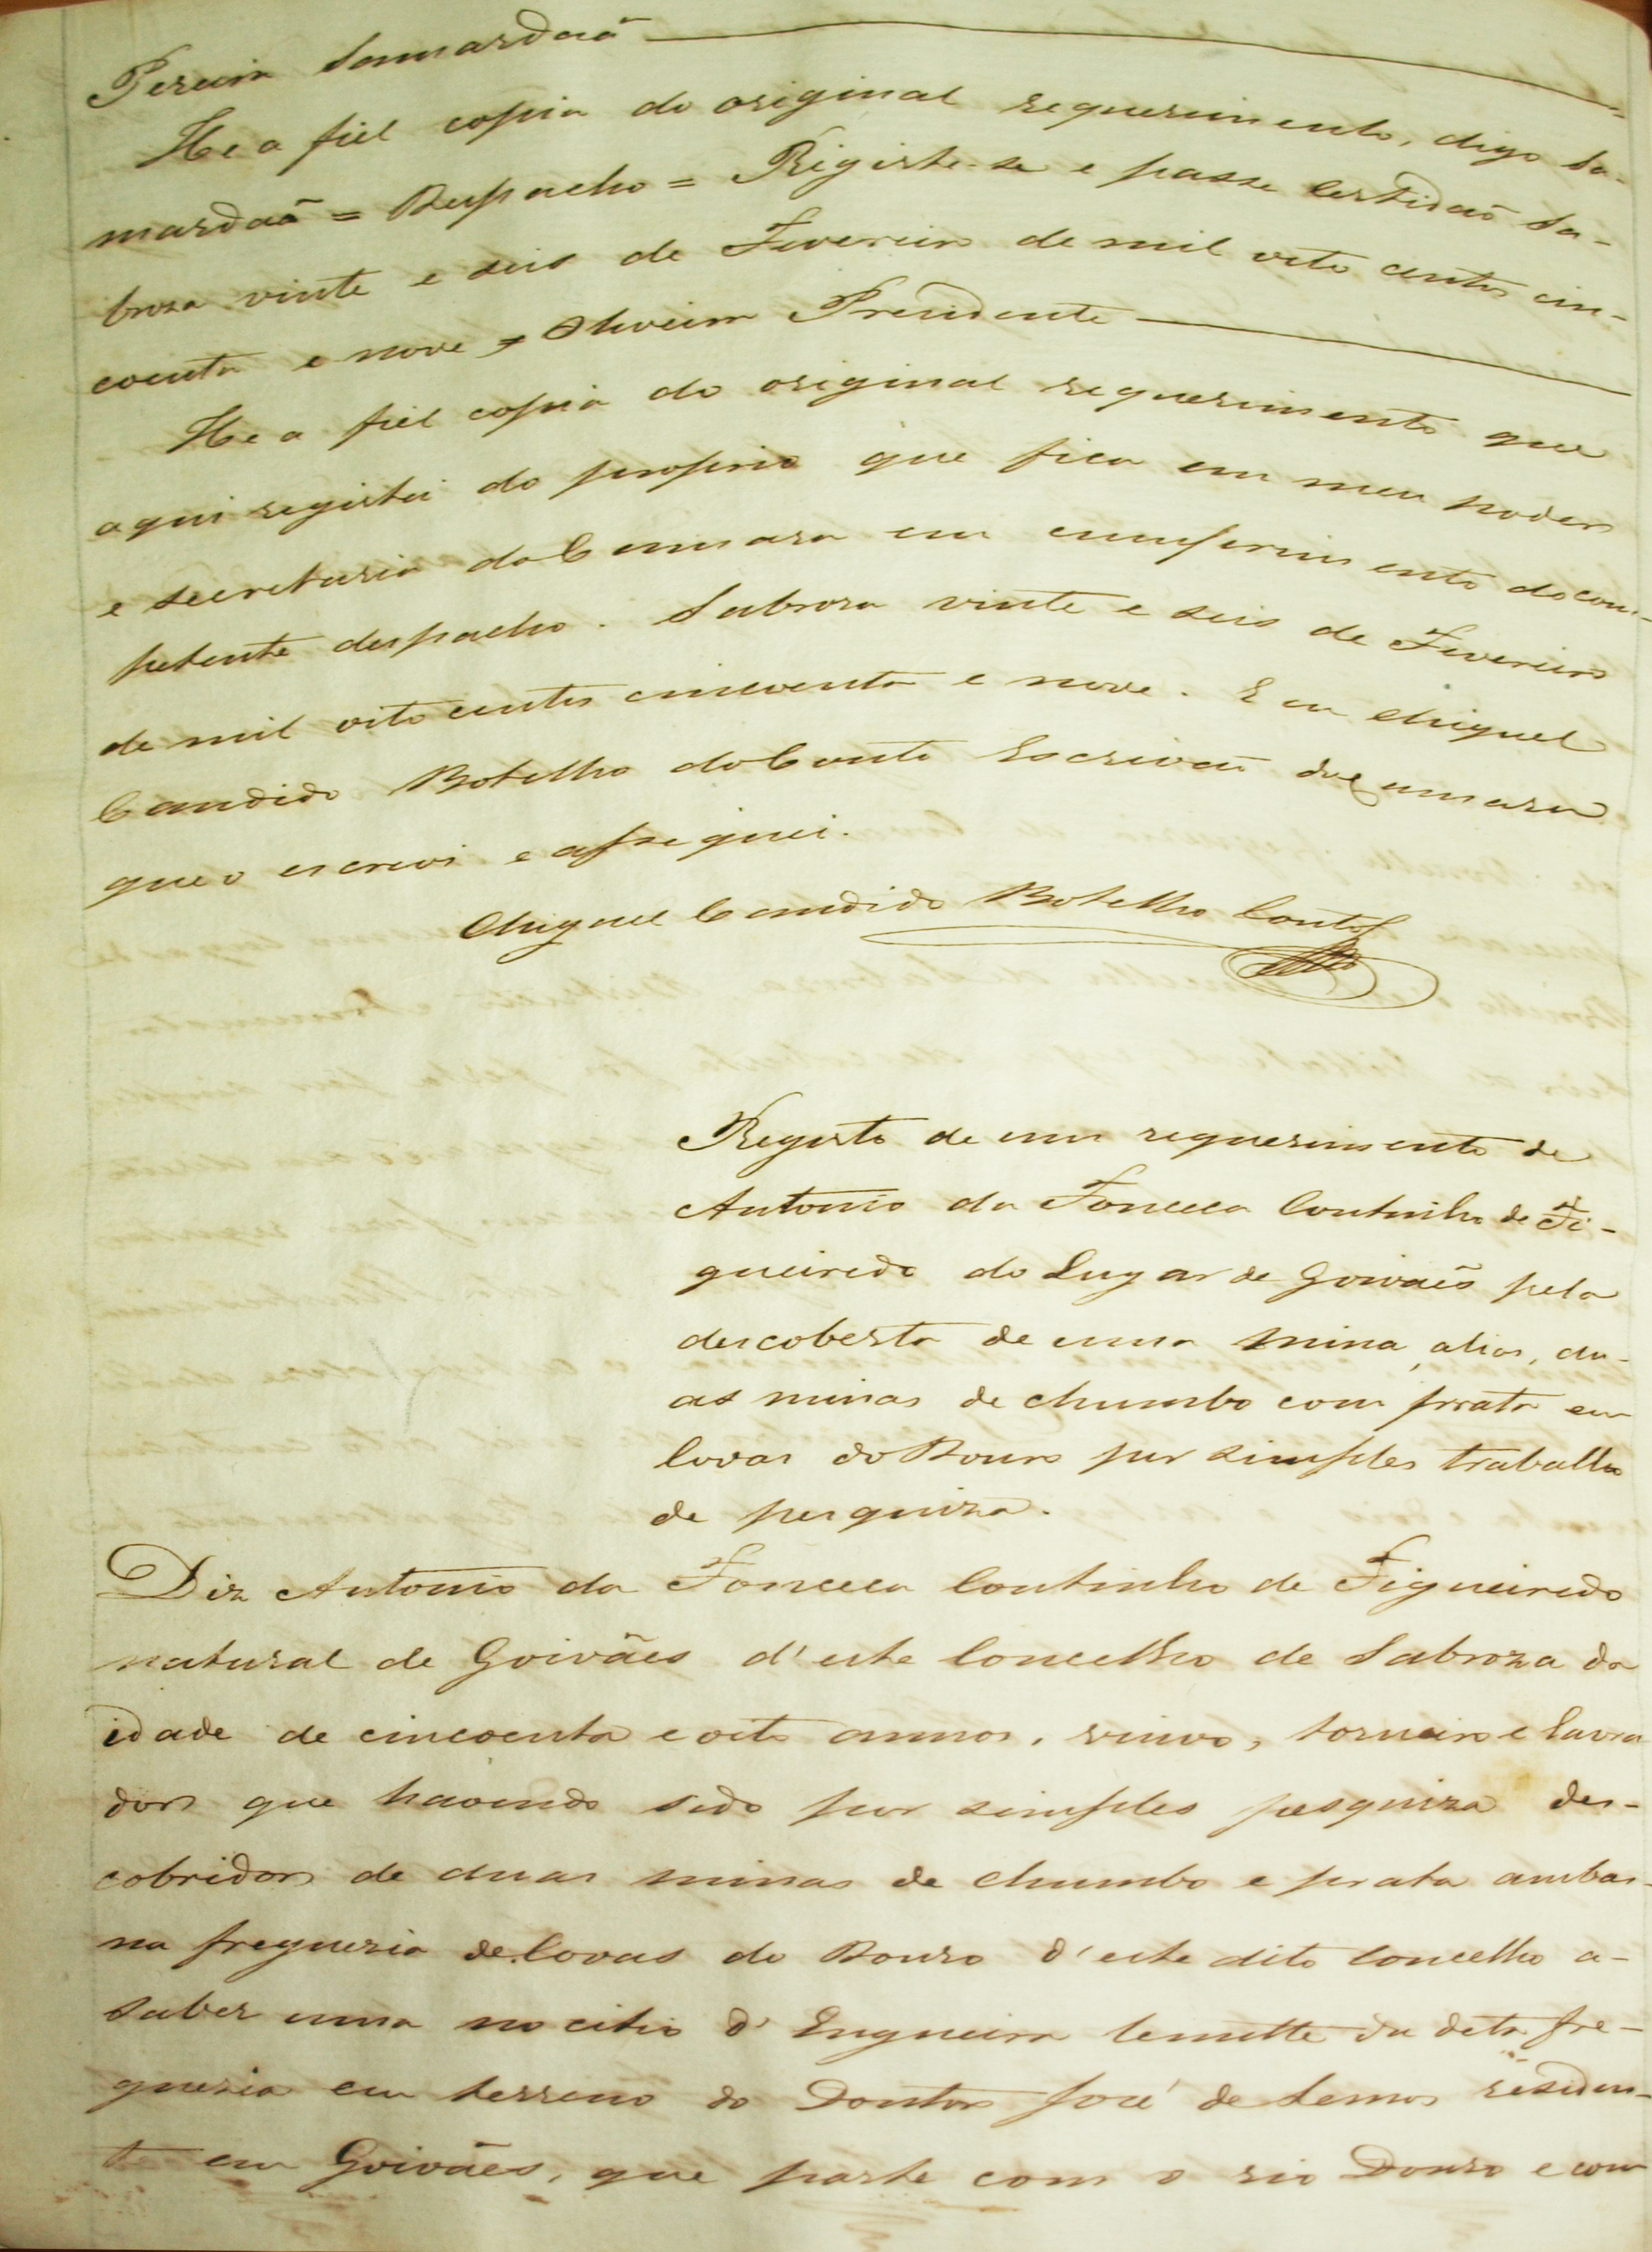 Pereira Samardaã
He a fiel copia do original requerimento, digo Sa-
mardaã = Despacho = Registe-se e passe certidaõ Sa-
broza vinte e seis de Fevereiro de mil oito centos cin-
coenta e nove = Oliveira Prezidente
He a fiel copia do original requerimento que
aqui registei do proprio que fica em meu poder
e secretaria da Camara em cumprimento do com-
petente despacho. Sabroza vinte e seis de Fevereiro
de mil oito centos cincoenta e nove. E eu Miguel
Candido Botelho do Couto Escrivaõ da Camara
que o escrevi e assignei.
Miguel Candido Botelho Couto
Registo de um requerimento de
Antonio da Fonceca Coutinho de Fi-
gueiredo do Lugar de Goivaẽs pela
descoberta de uma mina, alias, du-
as minas de chumbo com prata em
Covas do Douro por simples trabalho
de pesquiza.
Diz Antonio da Fonceca Coutinho de Figueiredo
natural de Goivães d'este Concelho de Sabroza da
idade de cincoenta e oito annos, viuvo, torneiro e lavra
dor que havendo sido por simples pesquiza des-
cobridor de duas minas de chumbo e prata ambas
na freguesia de Covas do Douro d'este dito Concelho a-
saber uma no citio d' Engueira lemitte da dita fre-
guesia em terreno do Doutor José de Lemos residen-
te em Goivães, que parte com o rio Douro e com